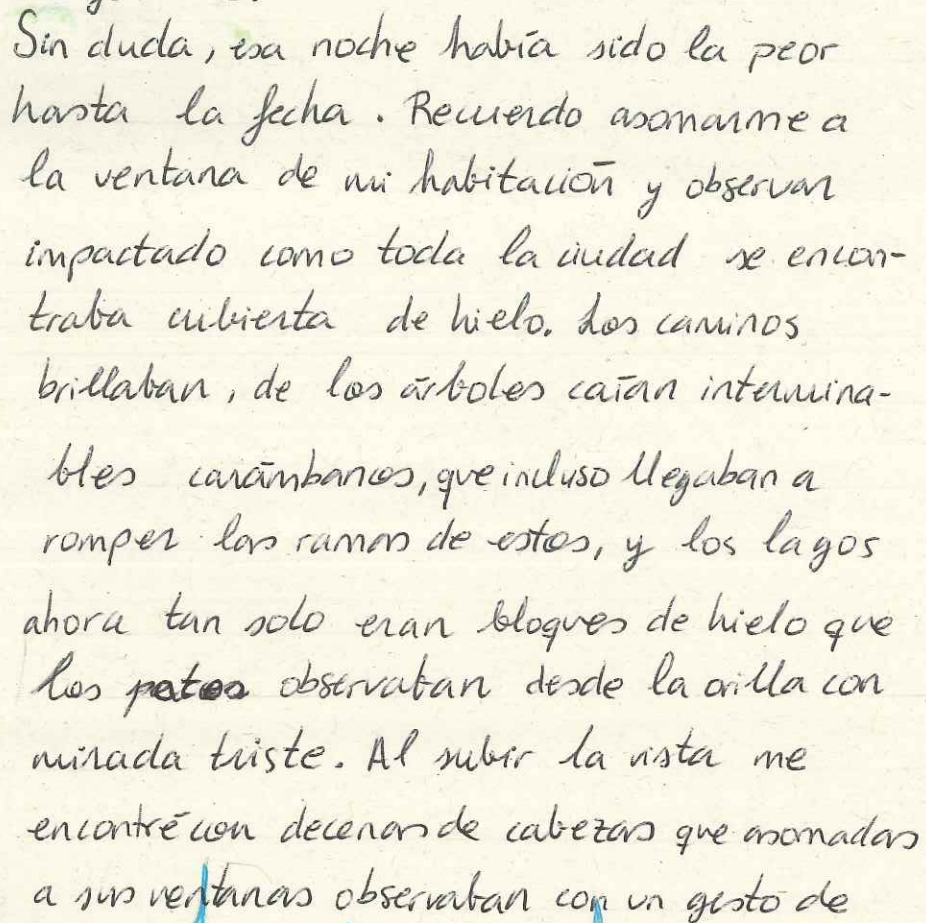 Sin duda, esa noche había sido la peor
hasta la fecha. Recuerdo asomarme a
la ventana de mi habitación y observar
impactado como toda la ciudad se encon-
traba cubierta de hielo. Los caminos
brillaban, de los árboles caían intermina-
bles carámbanos, que incluso llegaban a
romper las ramas de estos, y los lagos
ahora tan solo eran bloques de hielo que
los patos observaban desde la orilla con
mirada triste. Al subir la vista me
encontré con decenas de cabezas que asomadas
a sus ventanas observaban con un gesto de